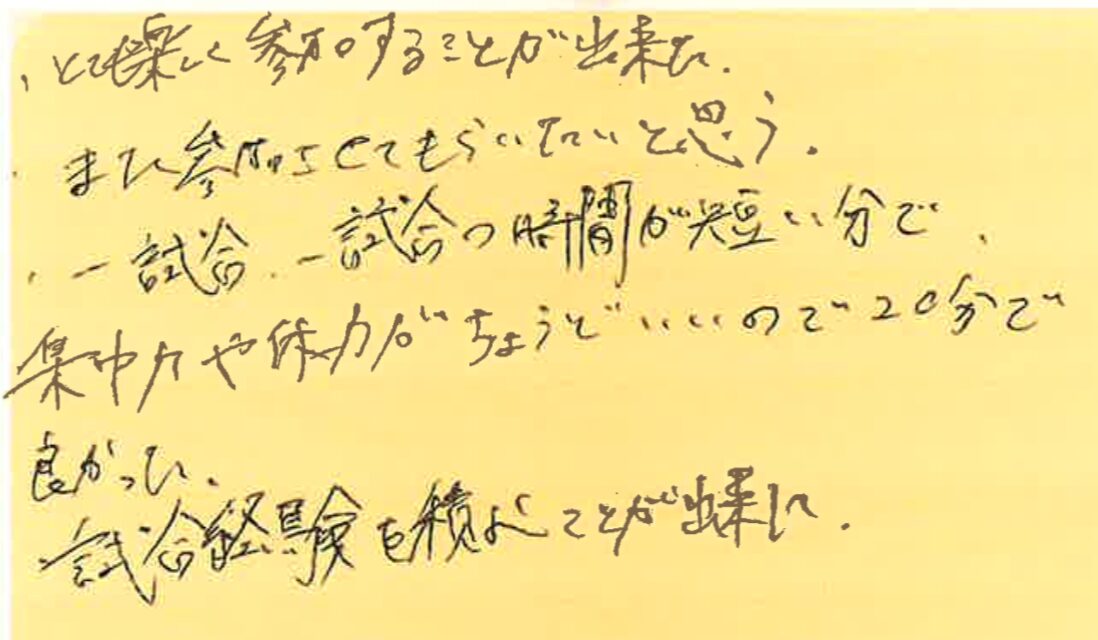 ・とても楽しく参加することが出来た.
・また参加させてもらいたいと思う.
・一試合、一試合の時間が短い分で、
集中力や体力がちょうどいいので20分で
良かった.
試合経験を積むことが出来た.